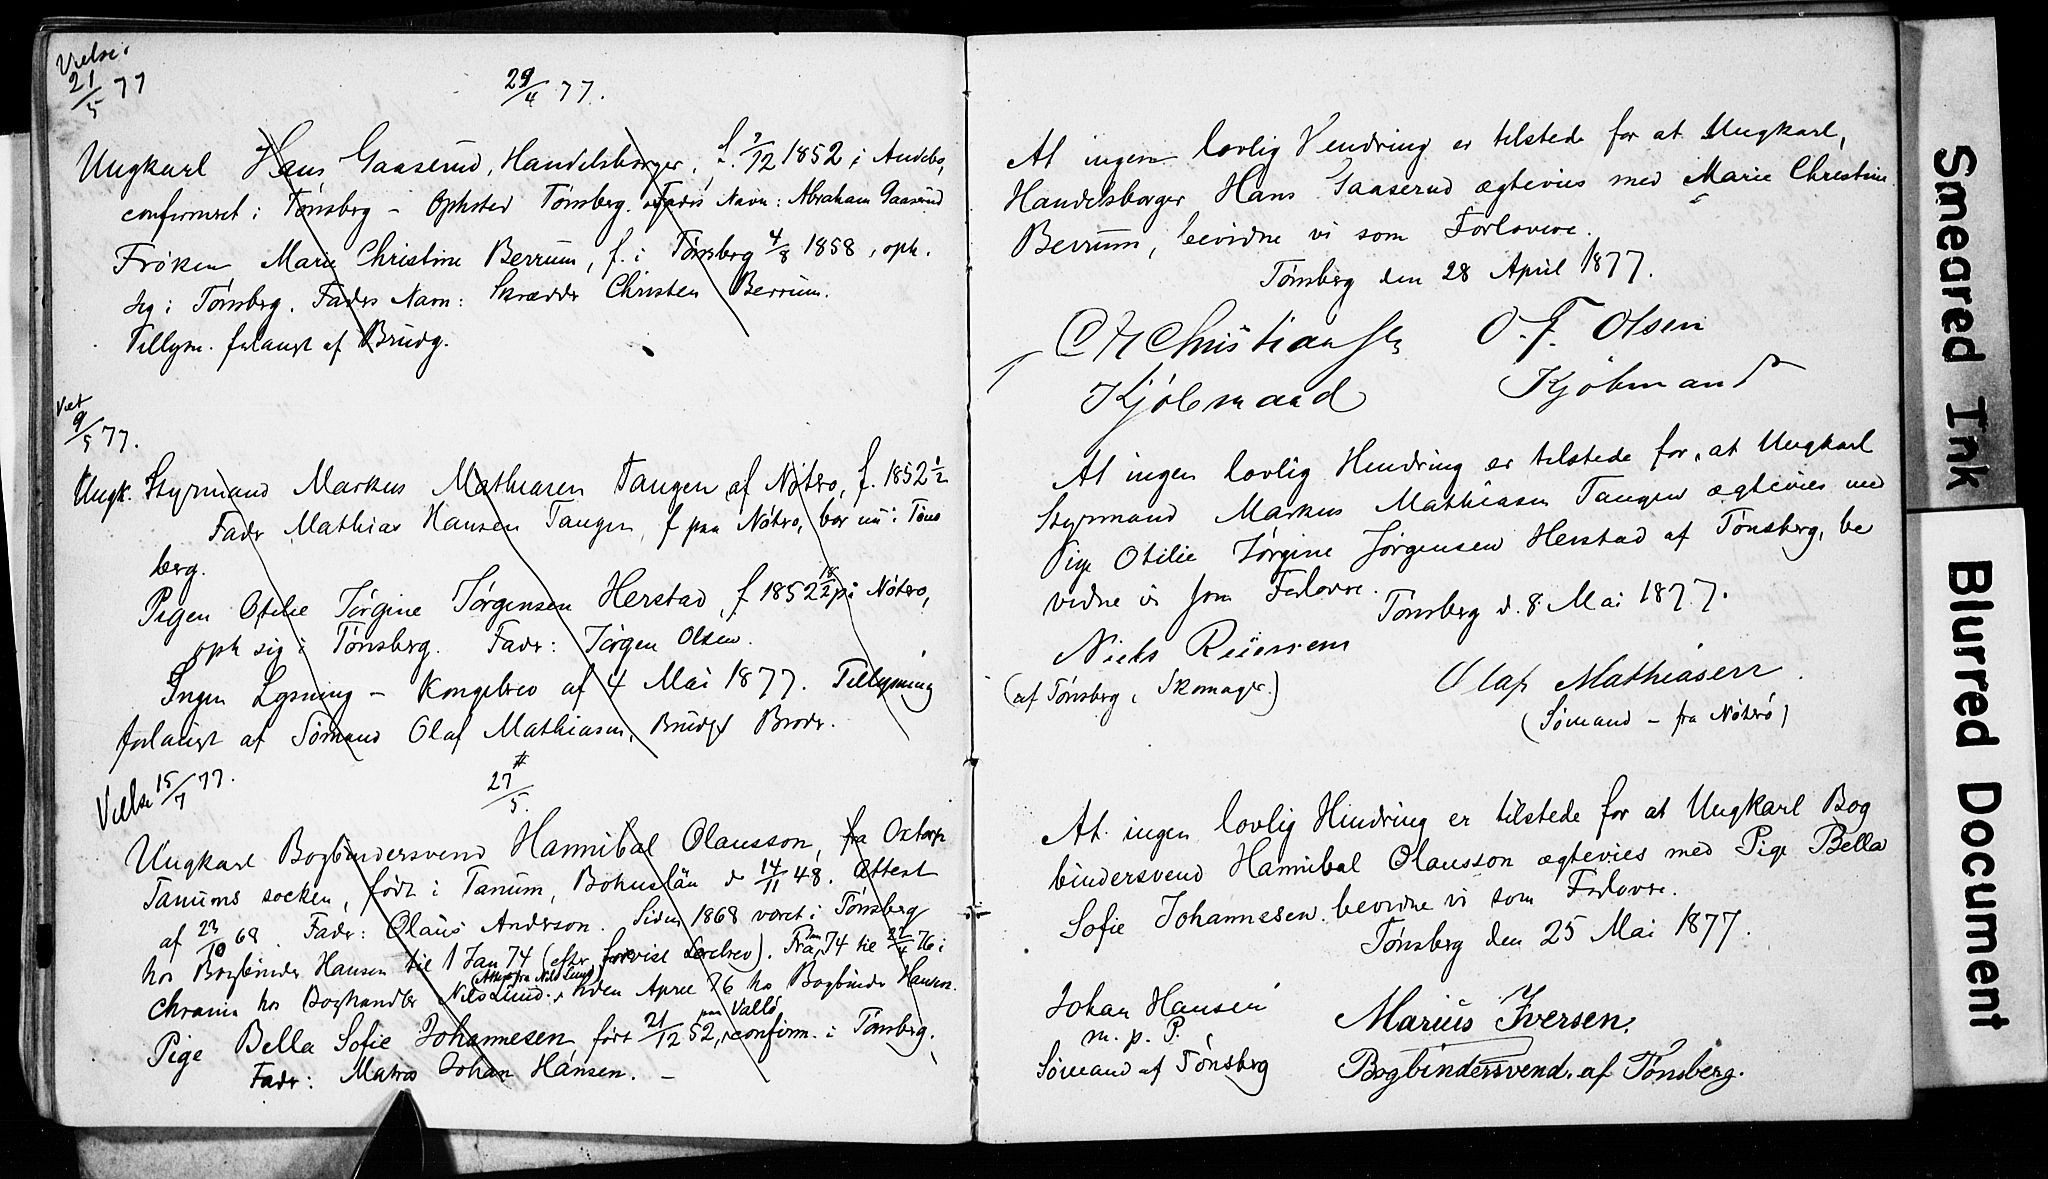 Vielse
21/5 77
29/4 77.
Ungkarl Hans Gaaserud, Handelsborger, f. 7/12 1852 i Andebo,
confirmeret i Tønsberg – Opholdsted Tønsberg. Faders Navn: Abraham Gaaserud
Frøken Marie Christine Berrum, f. i Tønsberg 4/8 1858, oph.
sig i Tønsberg. Faders Navn: Skrædder Christen Berrum.
Tillysn. forlangt af Brudg.
Viet
9/5 77.
Ungk. Styrmand Markus Mathiasen Tangen af Nøterø, f. 1852 1/2
Fader Mathias Hansen Tangen, f paa Nøterø, bor nu i Tøns
berg.
Pigen Otilie Jørgine Jørgensen Herstad, f 1852 18/2 i Nøterø,
oph sig i Tønsberg. Fader: Jørgen Olsen.
Ingen Lysning – Kongebrev af 4 Mai 1877. Tillysning
forlangt af Sømand Olaf Mathiasen, Brudgs Broder.
Vielse 15/7 77.
27/5.
Ungkarl Bogbindersvend Hannibal Olausson, fra Oxtorp
Tanums socken, født i Tanum, Bohuslän d 14/11 48. Attest
af 23/10 68. Fader: Olaus Anderson. Siden 1868 været i Tønsberg
hos Bogbinder Hansen til 1 Jan 74 (efter forvist Lærebrev). Fra Jan 74 til 22/4 76 i
Chrania hos Boghandler Nils Lund. (Attest fra Nils Lund) siden April 76 hos Bogbinder Hansen.
Pige Bella Sofie Johannesen, født 21/12 52, paa Vallø confirm. i Tønsberg.
Fader: Matros Johan Hansen. –
At ingen lovlig Hendring er tilstede for at Ungkarl,
Handelsborger Hans Gaaserud ægtevies med Marie Christine
Berrum, bevidne vi som Forlovere.
Tønsberg den 28 April 1877.
O. F. Olsen
Kjøbmand Kjøbmand
At ingen lovlig Hendring er tilstede for, at Ungkarl
Styrmand Markus Mathiasen Tangen ægtevies med
Pige Otilie Jørgine Jørgensen Herstad af Tønsberg, be
vidne vi som Forlovere.
Tønsberg d. 8 Mai 1877.
Niels
(af Tønsberg, Skomager.)
Olaf Mathiasen
(Sømand – fra Nøterø)
At ingen lovlig Hindring er tilstede for at Ungkarl Bog
bindersvend Hannibal Olausson ægtevies med Pige Bella
Sofie Johannesen bevidne vi som Forlovere.
Tønsberg den 25 Mai 1877.
Johan Hansen
m. p. P.
Sømand af Tønsberg
Marius Iversen.
Bogbindersvend. af Tønsberg.
Smeared Ink
Blurred Document